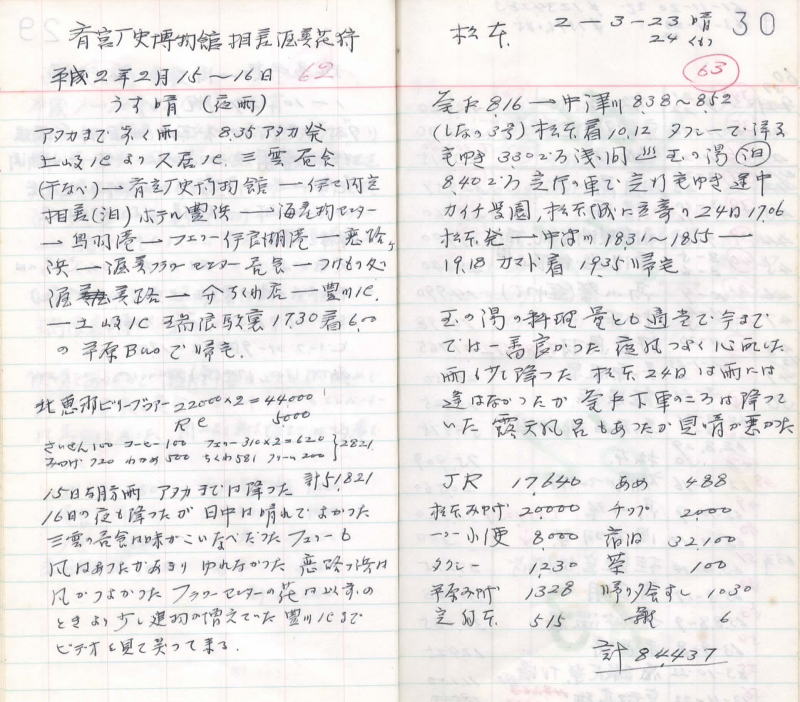 斉宮歴史博物館 相差渥美花狩
平成2年2月15～16日 62
うす晴（夜雨）
アタカまで歩く雨 8.35アタカ発
土岐ICより久居IC 三雲昼食
(干なべ)→斉宮歴史博物館→伊セ内宮
相差(泊)ホテル豊浜→海産物センター
→鳥羽港→フェリー伊良湖港→恋路ヶ
浜→渥美フラワーセンター昼食→つけもの処
渥美路→ちくわ店→豊川IC.
→土岐IC 瑞浪 17.30着6.00
の平原Busで帰宅.
北恵那ビリーブツアー 22000×2=44000
5000
さいせん100 コーヒー100 フェリー310×2=620
みやげ720 わかめ500 ちくわ581 クリーム200 }2821
計51,821
15日は雨 アタカまでは降った
16日の夜も降ったが日中は晴れでよかった
三雲の昼食は味がこいなべだった フェリーも
風はあったがあまりゆれなかった 恋路ヶ浜は
風がつよかった フラワーセンターの花は以前の
ときより少し建物が増えていた 豊川ICまで
ビデオを見て笑って来る.
30
松本 2-3-23晴
24(〃)
63
釜戸8.16→中津川8.38～8.52
(しなの3号)松本着10.12 タクシーで降る
宅ゆき 3.30ごろ浅間 玉の湯(泊)
8.40ごろ の車で 宅ゆき途中
カイチ学園,松本城に立寄り24日17.06
松本発→中津川18.31～18.55→
19.18カマド着 19.35帰宅
玉の湯の料理量とも適当で今まで
では一番良かった 夜風つよく心配した
雨も少し降った 松本24日は雨には
逢はなかったが釜戸下車のころは降って
いた 露天風呂もあったが見晴が悪かった
JR 17,640 あめ 488
松本みやげ 20000 チップ 2000
〃 小便 8,000 宿泊 32,100
タクシー 1,230 茶 100
平原みやげ 1328 帰り夕食すし 1030
本 515 6
計 84,437